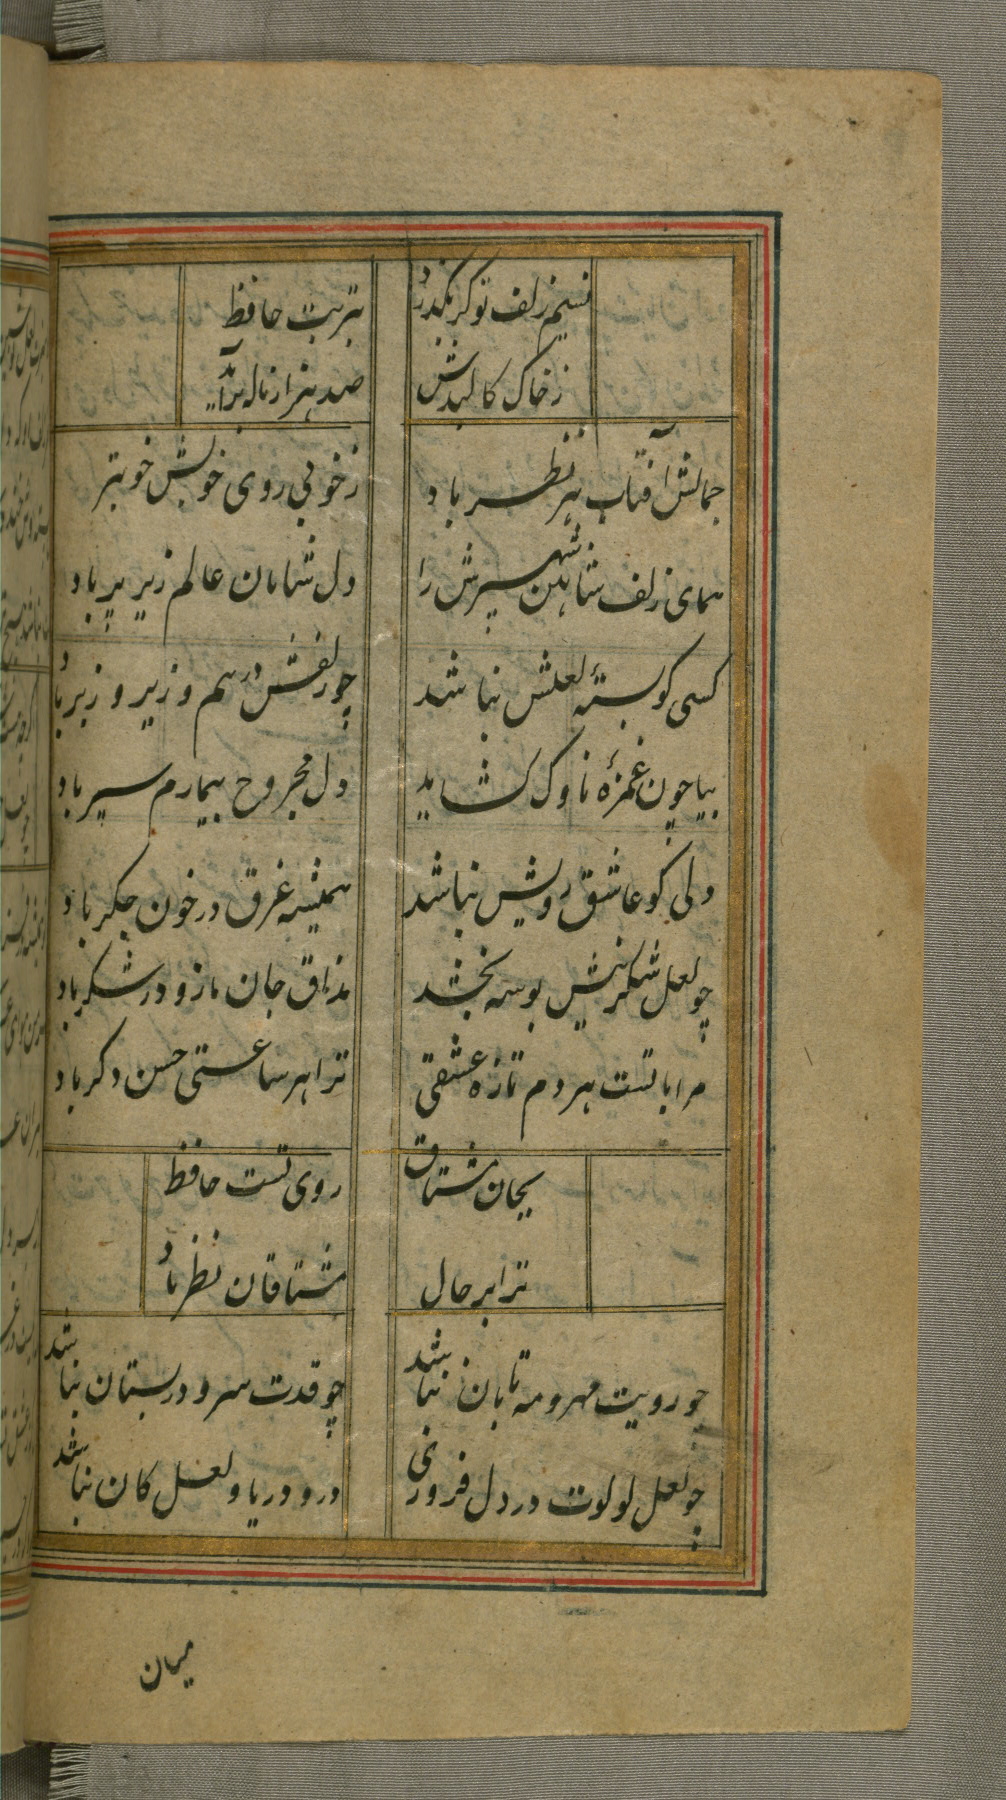 نسیم زلف تو کر بگذرد بتربت حافظ
ز خاک کالبدش صد هزار ناله برآید
جمالش آفتاب هر نظر باد ز خوبی روی خوبش خوبتر باد
همای زلف شاهین شهپرش را دل شاهان عالم زیر پر باد
کسی کو بستهٔ لعلش نباشد چو زلفش درهم و زیر و زبر باد
بیا چون غمزهٔ ناوک کشاید دل مجروح بیمارم سپر باد
دلی کو عاشق رویش نباشد همیشه غرق در خون جکر باد
چو لعل شکرینش بوسه بخشد مذاق جان ما زو در شکر باد
مرا با تست هر دم تازه عشقی ترا هر ساعتی حسن دکر باد
بجان مشتاق روی تست حافظ
ترا بر حال مشتاقان نظر باد
چو رویت مهر و مه تابان نباشد چو قدت سرو در بستان نباشد
چو لعل لولوت در دل فروزی در و دریا و لعل کان نباشد
میان